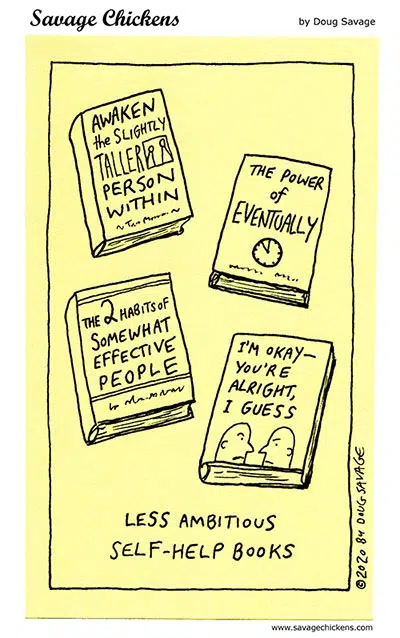 Savage Chickens
by Doug Savage
AWAKEN
the SLIGHTLY
TALLER
PERSON
WITHIN
THE POWER
of
EVENTUALLY
THE 2 HABITS OF
SOMEWHAT
EFFECTIVE
PEOPLE
I'M OKAY—
YOU'RE
ALRIGHT,
I GUESS
LESS AMBITIOUS
SELF-HELP BOOKS
©2020 BY DOUG SAVAGE
www.savagechickens.com